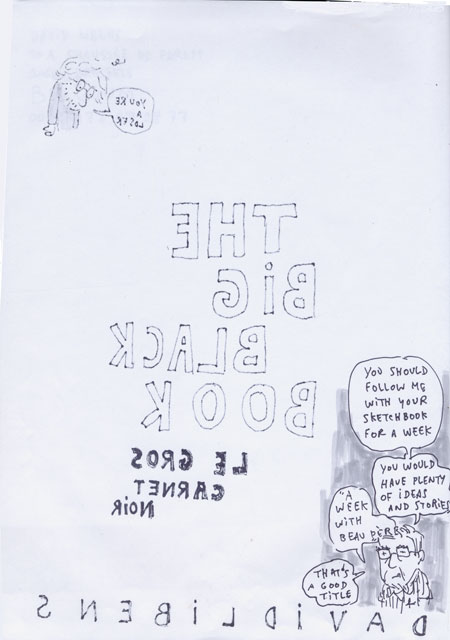 YOU'RE
A
LOSER
THE
BIG
BLACK
BOOK
LE GROS
CARNET
NOIR
YOU SHOULD
FOLLOW ME
WITH YOUR
SKETCHBOOK
FOR A WEEK
YOU WOULD
HAVE PLENTY
OF IDEAS
AND STORIES
"A
WEEK
WITH
BEAU
THAT'S
A GOOD
TITLE
DAVID LIBENS